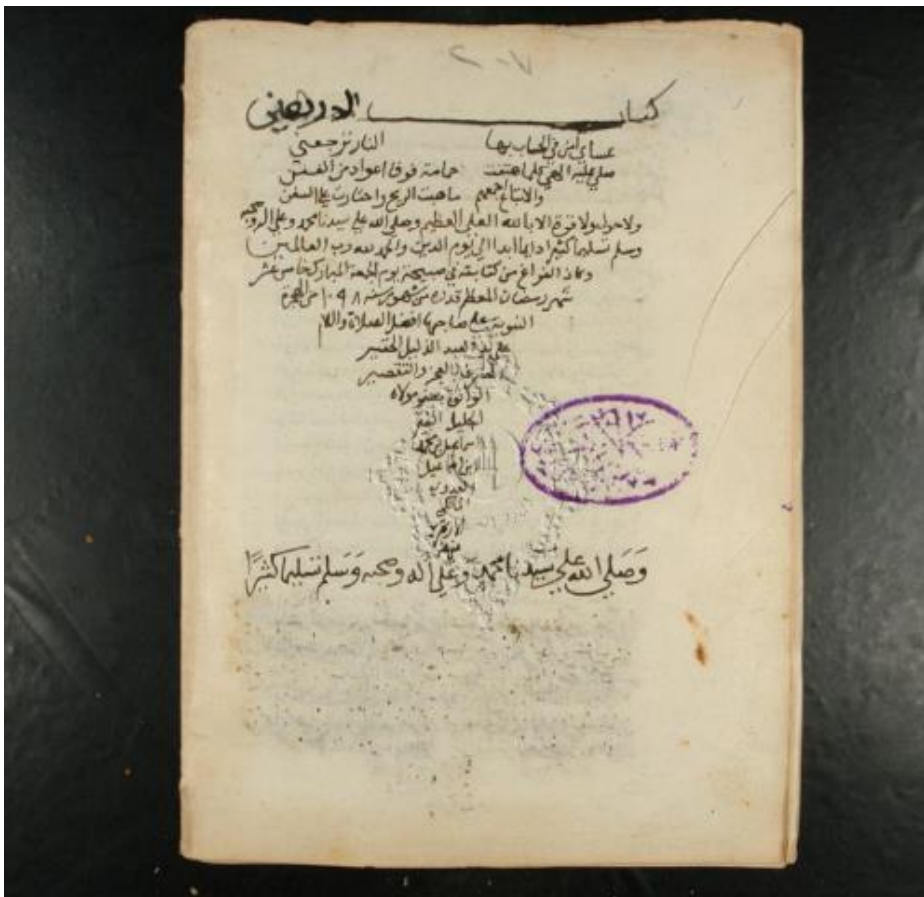 كتاب الدر
عساي امن في الحساب بها النار تزجعني
صلي عليه الهي كلما هتفت حمامة فوق اعواد من الفنن
والاتباع اجمعهم ماهبت الريح واختارت علي السفن
ولا حول ولا قوة الا بالله العلي العظيم وصلي الله علي سيدنا محمد وعلي اله وصحبه
وسلم تسليما كثيرا دايما ابدا الي يوم الدين والحمد لله رب العالمين
وكان الفراغ من كتابته في صبيحة يوم الجمعة المبارك خامس عشر
شهر رمضان المعظم قدره من شهور سنه ١٠٤٨ من الهجرة
النبوية علي صاحبها افضل الصلاة والسلام
علي يد العبد الذليل الحقير
المعترف بالعجز والتقصير
الواثق بعفو مولاه
الجليل الفقير
اسماعيل
ابن اسماعيل
المالكي
الازهري
وصلي الله علي سيدنا محمد وعلي اله وصحبه وسلم تسليما كثيرا